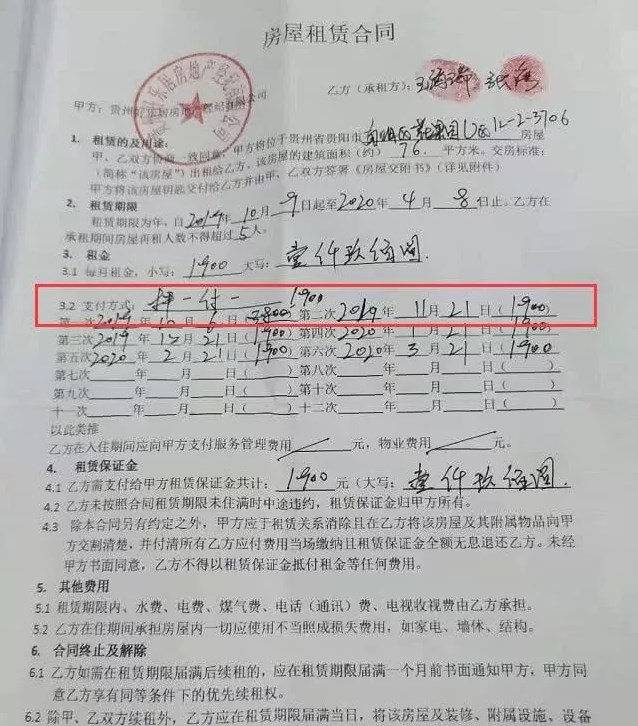 房屋租赁合同
甲方：贵州 乐居房地产经纪有限公司
乙方（承租方）：
1. 租赁的及用途：
甲、乙双方协商一致同意，甲方将位于贵州省贵阳市 12-2-3706 房屋
（简称“该房屋”）出租给乙方，该房屋的建筑面积（约） 76. 平方米。交房标准：
甲方将该房屋钥匙交付给乙方并由甲、乙双方签署《房屋交附书》（详见附件）
2. 租赁期限
租赁期限为年，自2019年10月9日起至2020年4月8日止。乙方在
承租期间房屋再租人数不得超过5人。
3. 租金
3.1 每月租金，小写：1900 大写：壹仟玖佰圆.
3.2 支付方式：押一付一 1900
第一次2019年10月6日（3800）第二次2019年11月21日（1900）
第三次2019年12月21日（1900）第四次2020年1月21日（1900）
第五次2020年2月21日（1900）第六次2020年3月21日（1900）
第七次 年 月 日（ ）第八次 年 月 日（ ）
第九次 年 月 日（ ）第十次 年 月 日（ ）
十一次 年 月 日（ ）十二次 年 月 日（ ）
以此类推
乙方在入住期间应向甲方支付服务管理费用 元，物业费用 元。
4. 租赁保证金
4.1 乙方需支付给甲方租赁保证金共计：1900元（大写：壹仟玖佰圆.
4.2 乙方未按照合同租赁期限未住满时中途违约，租赁保证金归甲方所有。
4.3 除本合同另有约定之外，甲方应于租赁关系消除且在乙方将该房屋及其附属物品向甲
方交割清楚，并付清所有乙方应付费用当场缴纳且租赁保证金全额无息退还乙方。未经
甲方书面同意，乙方不得以租赁保证金抵付租金等任何费用。
5. 其他费用
5.1 租赁期限内、水费、电费、煤气费、电话（通讯）费、电视收视费由乙方承担。
5.2 乙方在住期间承担房屋内一切应使用不当照成损失费用，如家电、墙休、结构。
6. 合同终止及解除
6.1 乙方如需在租赁期限届满后续租的，应在租赁期限届满一个月前书面通知甲方，甲方同
意乙方享有同等条件下的优先续租权。
6.2 除甲、乙双方续租外，乙方应在租赁期限届满当日，将该房屋及装修、附属设施、设备